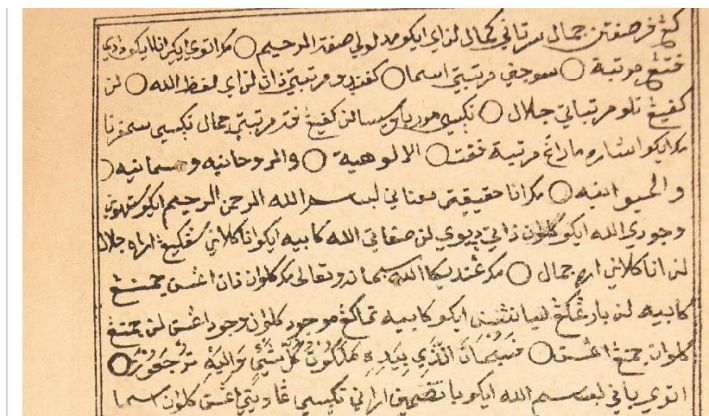 كڠ فرصفتن جمال سرتاني كمال لن اي ايكو مدلولي صفة الرحيم ○ مك اتوي ايكي
فتڠ مرتبة ○ سوجي مرتبتي اسما ○ كفيندو مرتبتي ذات لن اي لفظ الله ○ لن
كفيڠ تلو مرتباتي جلال ○ تكسي لن كفيڠ فت مرتبتي جمال تكسي سمفرنا
مك ايكو اشاره ماراڠ مرتبة ففت ○ الالوهية ○ والروحانيه وجسمانيه ○
والحيوانيه ○ مك انا حقيقتي معناني لبسم الله الرحمن الرحيم ايكو
وجودي الله ايكو كلوان ذاتي ديوي لن صفاتي الله كابيه ايكو اناكلاني سڠكيڠ اراه جلال
لن اناكلاني اره جمال ○ مك عنديكا الله سبحانه وتعالى مك كلوان ذات اڠسن جمنڠ
كابيه لن بارڠكڠ ليانڠسن ايكو كابيه موجود كلوان وجود اڠسن لن جمنڠ
كلوان جمنڠ اڠسن ○ فَسُبْحَانَ الَّذِي بِيَدِهِ مَلَكُوتُ كُلِّ شَيْءٍ وَاِلَيْهِ تُرْجَعُوْنَ ○
اتوي باني لبسم الله ايكو باتضمين تكسي كلوان اسما